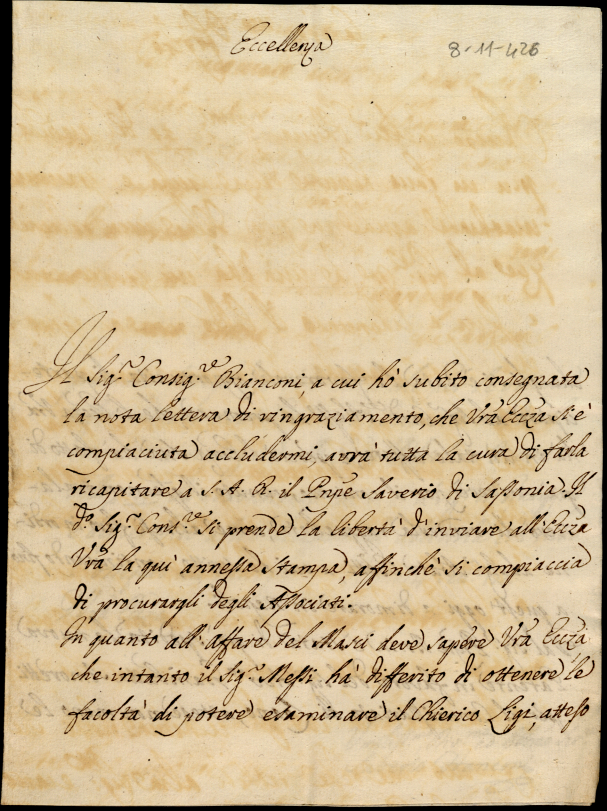 Eccellenza
8-11-426
Il Sig.r Consig.re Bianconi, a cui hò subito consegnata
la nota lettera di ringraziamento, che Vrã Eccza si è
compiaciuta accludermi, avrà tutta la cura di farla
ricapitare a S. A. R. il Pnpe Saverio di Sassonia. Il
dº Sig.r Cons.re si prende la libertà d'inviare all'Eccza
Vrã la quì annessa stampa, affinché si compiaccia
di procurargli degli Associati.
In quanto all'affare del Masci deve sapere Vrã Eccza,
che intanto il Sig.r Messi hà differito di ottenere le
facoltà di potere esaminare il Chierico Ligi, atteso